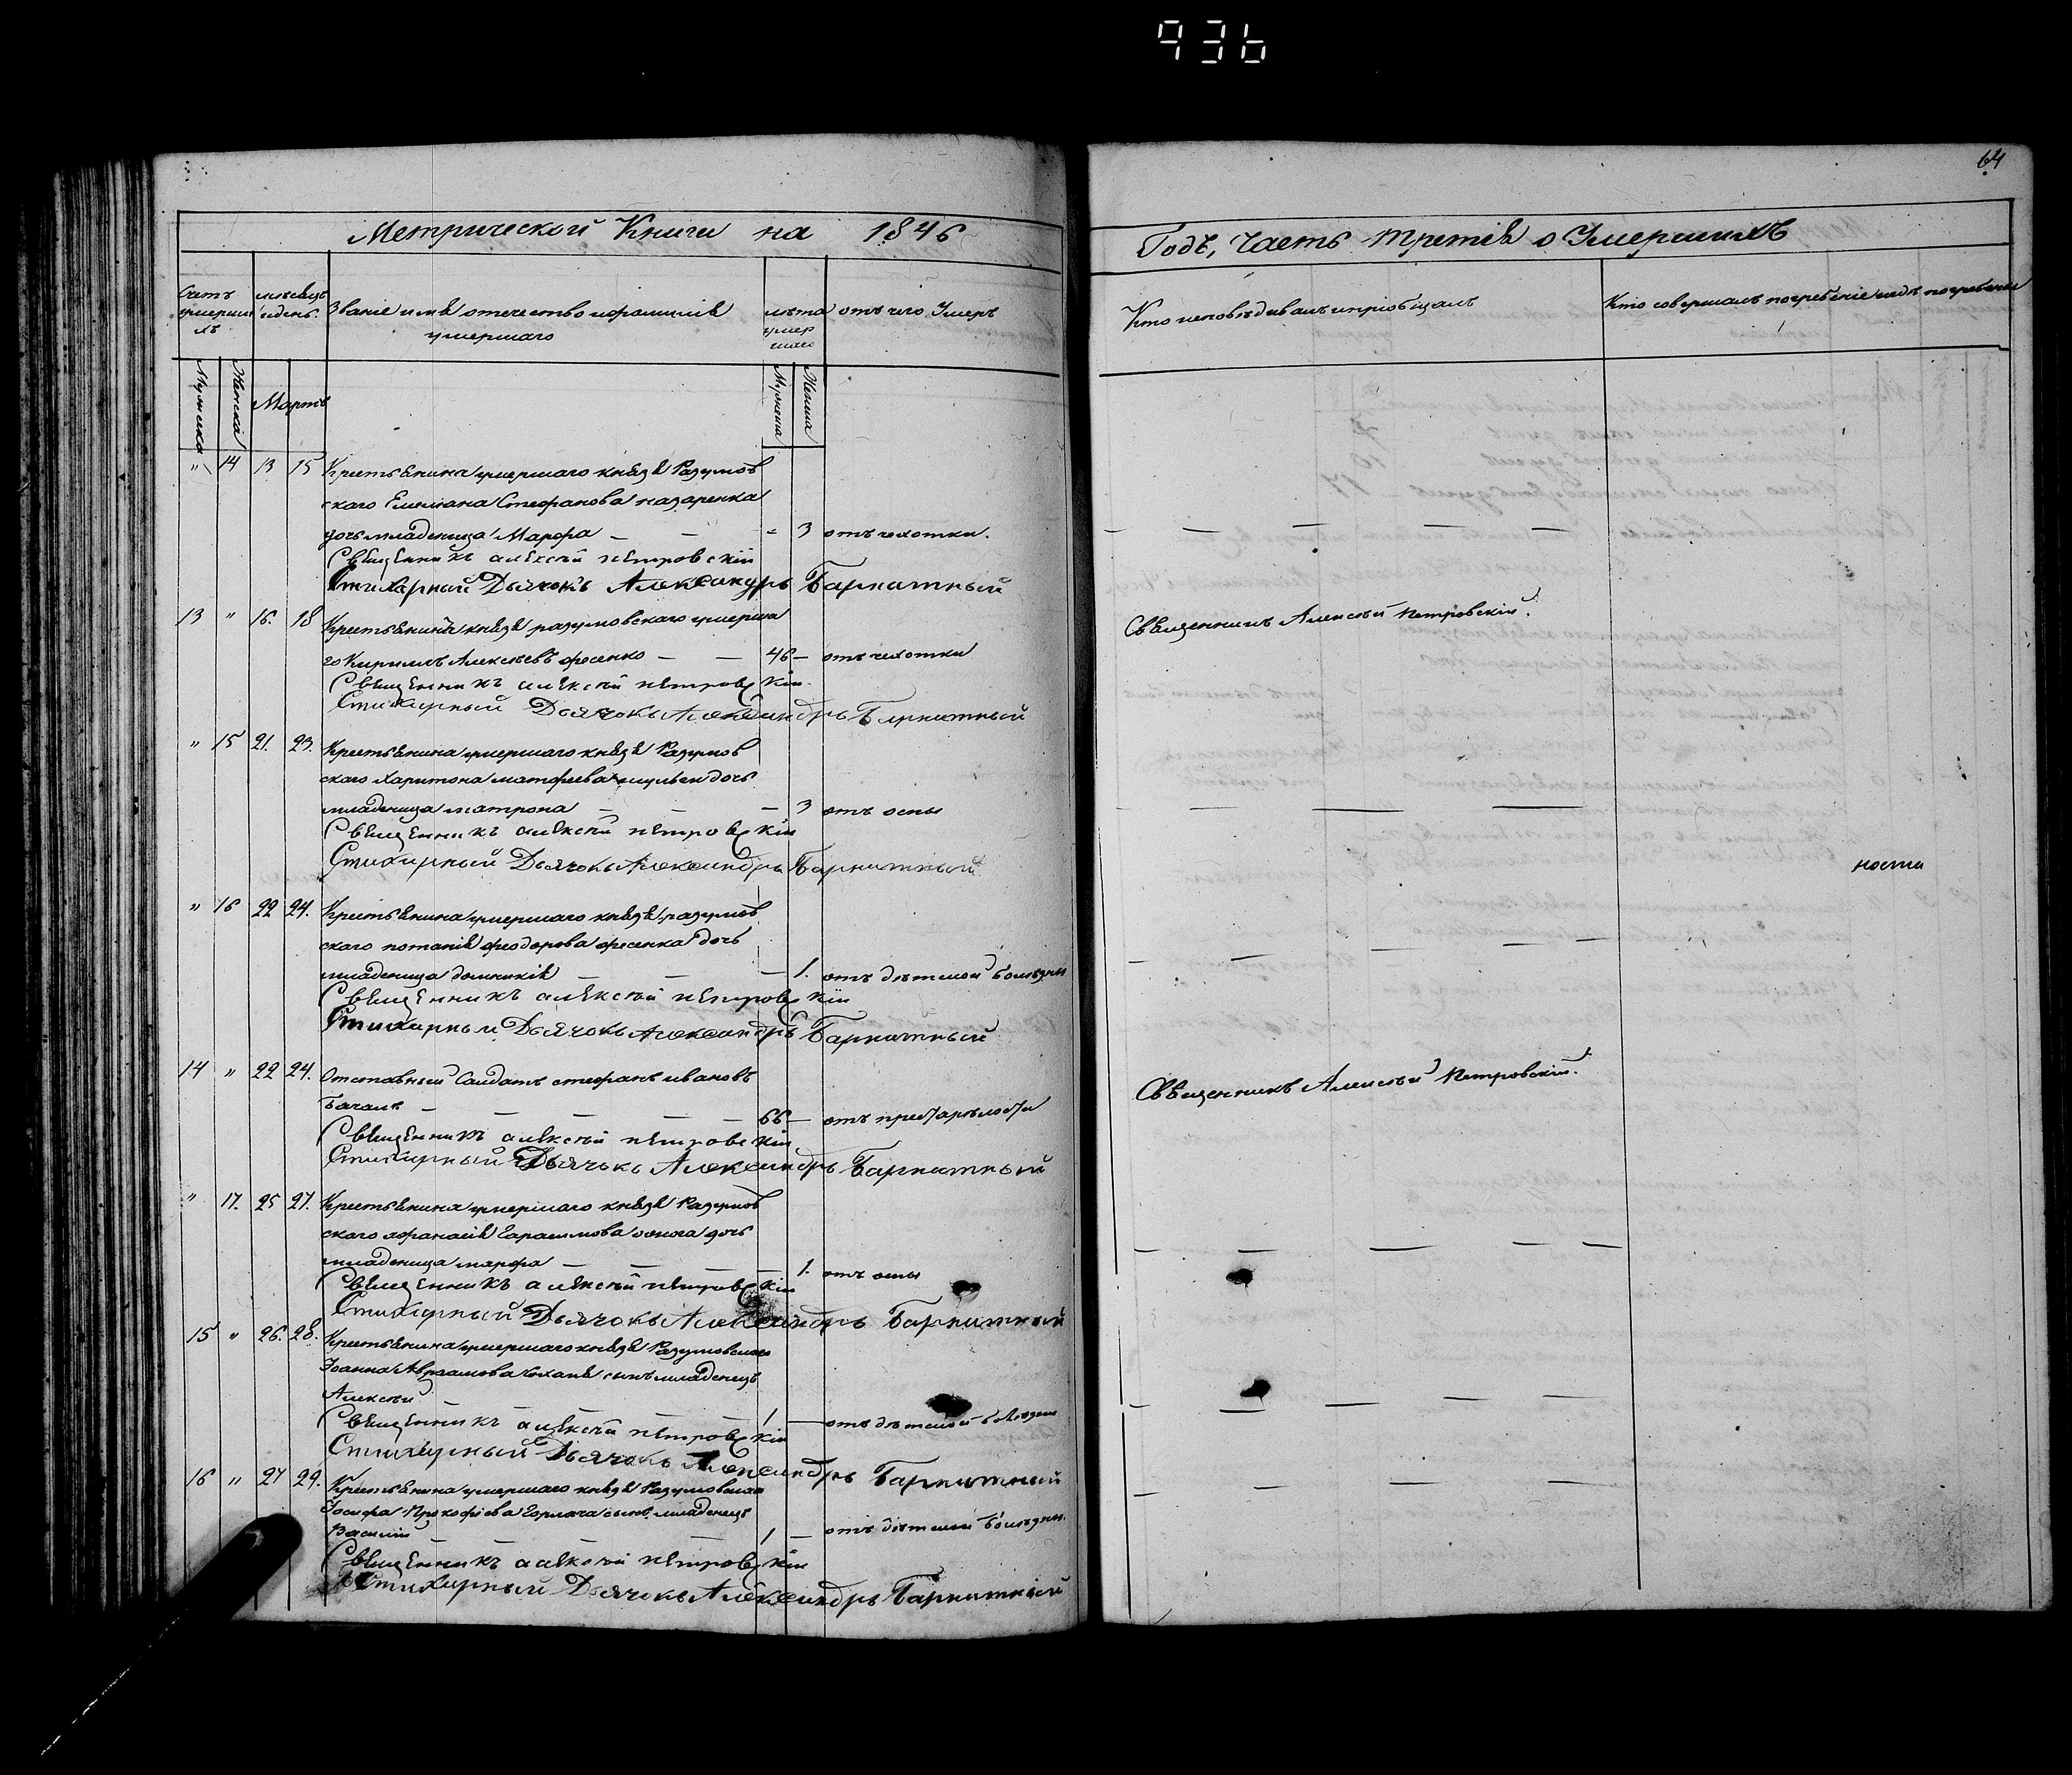 936
64
Метрической Книги на 1846
Годъ, Часть третія о Умершихъ
Счетъ умершихъ
мѣсяцъ и день.
Званіе имя отечество и фамилія умершаго
лѣта умершаго
отъ чего Умеръ
Кто исповѣдивалъ и пріобщалъ
Кто совершалъ погребеніе и гдѣ погребены
Мужска
Женска
Мартъ
Мужеска
Женска
" 14 13 15 Крестьянина умершаго князя Разумов
скаго Емелиана Стефанова назаренка
дочь младеница Марфа — — " 3 отъ чехотки.
Священникъ алексѣй петровскій
Стихарный Дьячокъ Александръ Барнатный
13 " 16. 18 Крестьянинъ князя разумовскаго умерша
го Кирилъ Алексѣевъ фесенко — — 46 — отъ чехотки
Священникъ Алексѣй Петровскій.
Священникъ алексѣй петровскій
Стихарный Дьячокъ Александръ Барнатный
" 15 21. 23. Крестьянина умершаго князя Разумов
скаго Харитона матфеева дочь
младеница матрона — — — 3 отъ оспы
Священникъ алексѣй петровскій
Стихарный Дьячокъ Александръ Барнатный
ности
" 16 22 24. Крестьянина умершаго князя разумов
скаго потапія феодорова фесенка дочь
младеница домникія — — — 1. отъ дѣтской болѣзни
Священникъ алексѣй петровскій
Стихарный Дьячокъ Александръ Барнатный
14 " 22 24. Отставный Салдатъ стефанъ ивановъ
— — — — — 66 — отъ престарѣлости
Священникъ Алексѣй Петровскій.
Священникъ алексѣй петровскій
Стихарный Дьячокъ Александръ Барнатный
" 17. 25 27. Крестьянина умершаго князя Разумов
скаго афанасія Гарасимова дочь
младеница марфа — — — — 1. отъ оспы
Священникъ алексѣй петровскій
Стихарный Дьячокъ Александръ Барнатный
15 " 26. 28. Крестьянина умершаго князя Разумовскаго
Іоанна Авраамова сынъ младенецъ
Алексѣй — — — — 1 — отъ дѣтской болѣзни
Священникъ алексѣй петровскій
Стихарный Дьячокъ Александръ Барнатный
16 " 27 29. Крестьянина умершаго князя Разумовскаго
Іосифа Прокофіева Горкача сынъ младенецъ
Василій — — — 1 — отъ дѣтской болѣзни.
Священникъ алексѣй петровскій
Стихарный Дьячокъ Александръ Барнатный